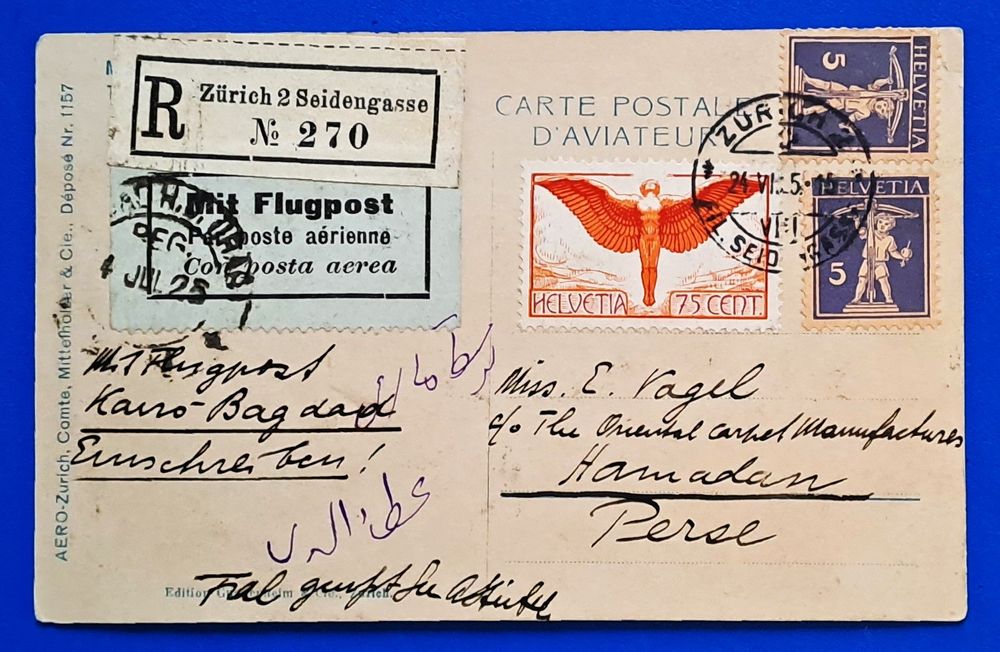 R Zürich 2 Seidengasse
№ 270
Mit Flugpost
Par poste aérienne
Con posta aerea
CARTE POSTALE
D'AVIATEUR
HELVETIA
5
HELVETIA
5
HELVETIA 75 CENT.
ZÜRICH 2
24 VI. 25
VII
FIL. SEIDENGASSE
REG.
4 JUL 25
AERO-Zurich, Comte, Mittelholzer & Cie., Déposé Nr. 1157
Mit Flugpost
Kairo-Bagdad
Einschreiben!
Miss. E. Vogel
c/o The Oriental carpet Manufactures
Hamadan
Perse
Edition & Cie., Zürich.